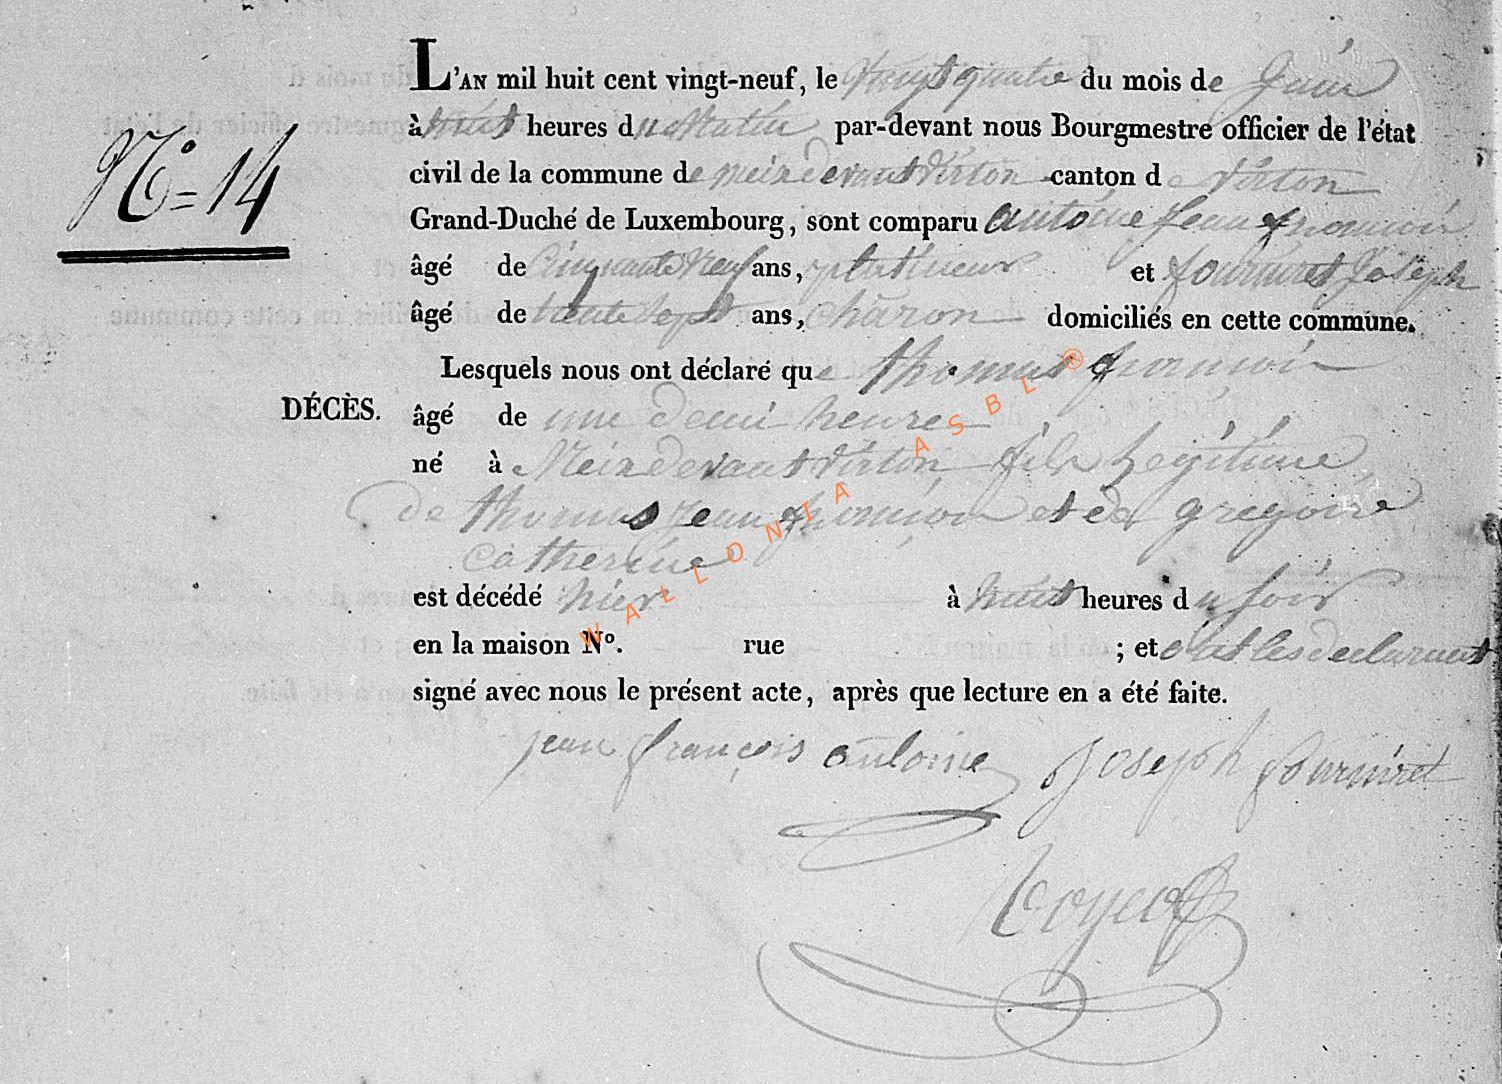 L'AN mil huit cent vingt-neuf, le vingt quatre du mois de Juin
à huit heures du Matin par-devant nous Bourgmestre officier de l'état
N° = 14
civil de la commune de meix devant virton canton de virton
Grand-Duché de Luxembourg, sont comparu antoine Jean françois
âgé de Cinquante Neuf ans, et fourniret Joseph
âgé de trente sept ans, charon domiciliés en cette commune.
Lesquels nous ont déclaré que thomas françois
DÉCÈS.
âgé de une demi heure
né à Meix devant virton fils Legitime
de thomas jean françois et de gregoire
catherine
est décédé hier à huit heures du soir
en la maison N°. rue ; et ont les declarant
signé avec nous le présent acte, après que lecture en a été faite.
jean françois antoine Joseph fourniret
WALLONIA ASBL ®